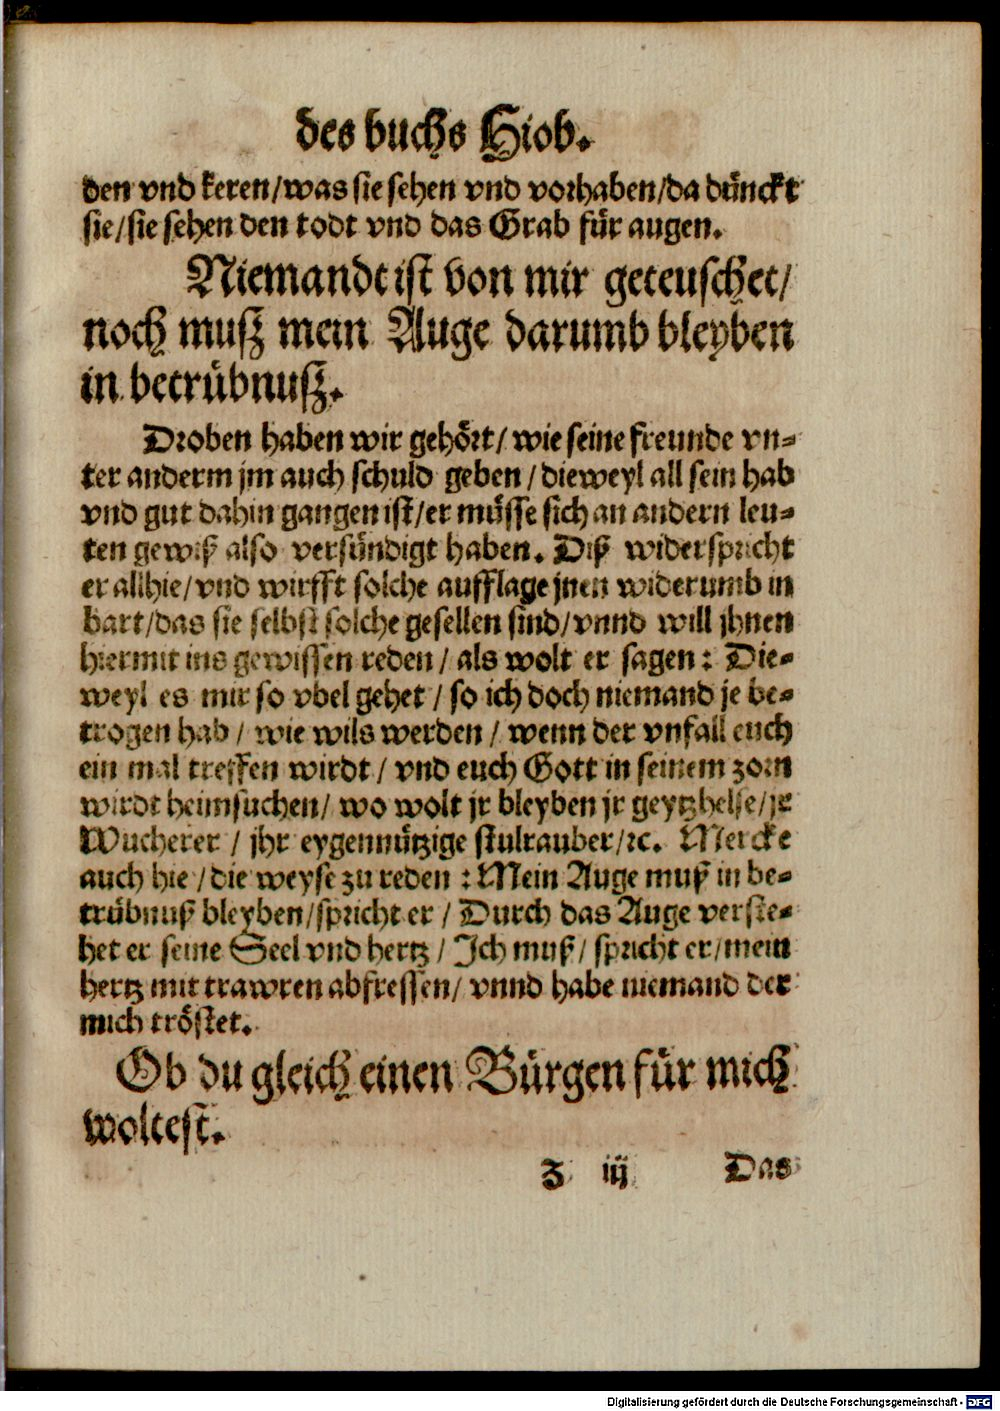 des buchs Hiob.
den vnd keren/was sie sehen vnd vorhaben/da dünckt
sie/sie sehen den todt vnd das Grab für augen.
Niemandt ist von mir geteuschet/
noch musz mein Auge darumb bleyben
in betrübnusz.
Droben haben wir gehört/ wie seine freunde vn-
ter anderm jm auch schuld geben / dieweyl all sein hab
vnd gut dahin gangen ist/er müsse sich an andern leu-
ten gewiß also versündigt haben. Diß widerspricht
er allhie/vnd wirfft solche aufflage jnen widerumb in
bart/das sie selbst solche gesellen sind/vnnd will jhnen
hiermit ins gewissen reden / als wolt er sagen: Die-
weyl es mir so vbel gehet / so ich doch niemand je be-
trogen hab / wie wils werden / wenn der vnfall euch
ein mal treffen wirdt / vnd euch Gott in seinem zorn
wirdt heimsuchen/ wo wolt jr bleyben jr geytzhelse/jr
Wucherer / jhr eygennützige stulrauber/ꝛc. Mercke
auch hie / die weyse zu reden : Mein Auge muß in be-
trübnuß bleyben/spricht er / Durch das Auge verste-
het er seine Seel vnd hertz / Ich muß / spricht er/mein
hertz mit trawren abfressen/ vnnd habe niemand der
mich tröstet.
Ob du gleich einen Bürgen für mich
woltest.
Z iij Das
Digitalisierung gefördert durch die Deutsche Forschungsgemeinschaft - DFG